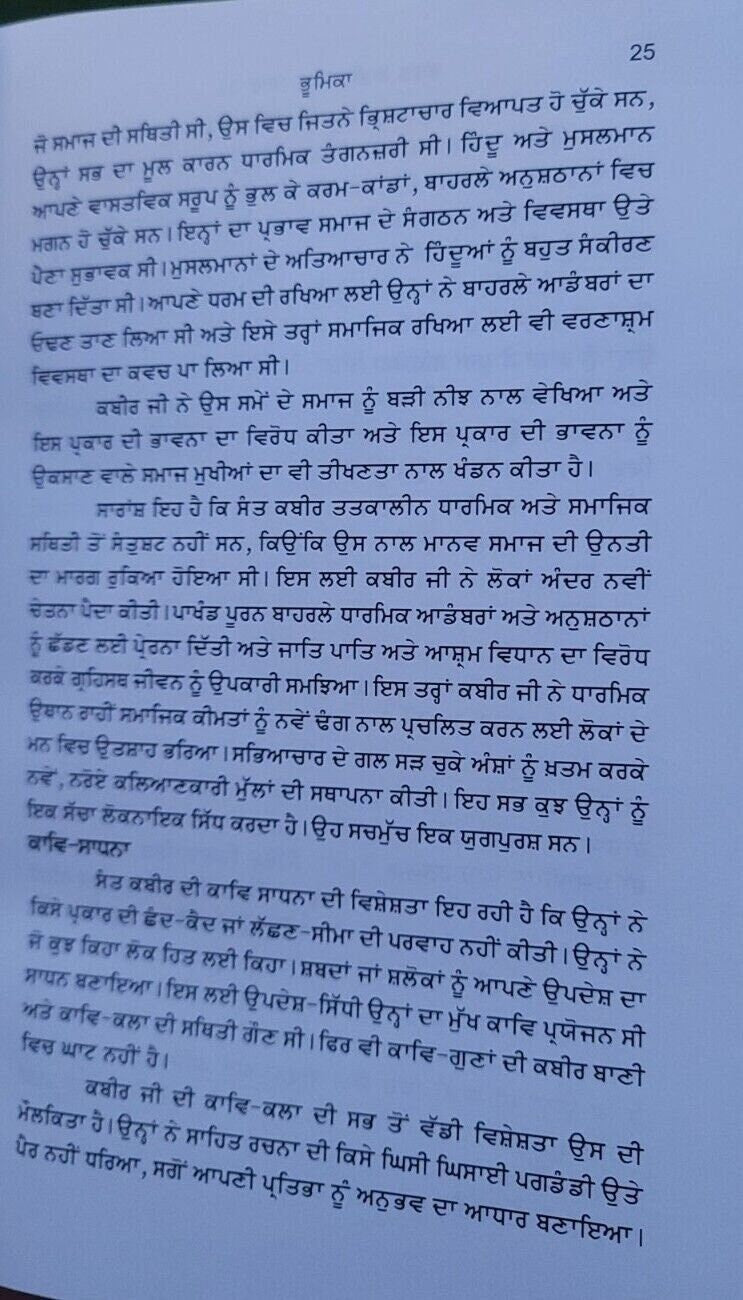 25
ਭੂਮਿਕਾ
ਜੋ ਸਮਾਜ ਦੀ ਸਥਿਤੀ ਸੀ, ਉਸ ਵਿਚ ਜਿਤਨੇ ਭ੍ਰਿਸ਼ਟਾਚਾਰ ਵਿਆਪਤ ਹੋ ਚੁੱਕੇ ਸਨ,
ਉਨ੍ਹਾਂ ਸਭ ਦਾ ਮੂਲ ਕਾਰਨ ਧਾਰਮਿਕ ਤੰਗਨਜ਼ਰੀ ਸੀ। ਹਿੰਦੂ ਅਤੇ ਮੁਸਲਮਾਨ
ਆਪਣੇ ਵਾਸਤਵਿਕ ਸਰੂਪ ਨੂੰ ਭੁਲ ਕੇ ਕਰਮ-ਕਾਂਡਾਂ, ਬਾਹਰਲੇ ਅਨੁਸ਼ਠਾਨਾਂ ਵਿਚ
ਮਗਨ ਹੋ ਚੁੱਕੇ ਸਨ। ਇਨ੍ਹਾਂ ਦਾ ਪ੍ਰਭਾਵ ਸਮਾਜ ਦੇ ਸੰਗਠਨ ਅਤੇ ਵਿਵਸਥਾ ਉਤੇ
ਪੈਣਾ ਸੁਭਾਵਕ ਸੀ। ਮੁਸਲਮਾਨਾਂ ਦੇ ਅਤਿਆਚਾਰ ਨੇ ਹਿੰਦੂਆਂ ਨੂੰ ਬਹੁਤ ਸੰਕੀਰਣ
ਬਣਾ ਦਿੱਤਾ ਸੀ। ਆਪਣੇ ਧਰਮ ਦੀ ਰਖਿਆ ਲਈ ਉਨ੍ਹਾਂ ਨੇ ਬਾਹਰਲੇ ਆਡੰਬਰਾਂ ਦਾ
ਓਢਣ ਤਾਣ ਲਿਆ ਸੀ ਅਤੇ ਇਸੇ ਤਰ੍ਹਾਂ ਸਮਾਜਿਕ ਰਖਿਆ ਲਈ ਵੀ ਵਰਣਾਸ਼੍ਰਮ
ਵਿਵਸਥਾ ਦਾ ਕਵਚ ਪਾ ਲਿਆ ਸੀ।
ਕਬੀਰ ਜੀ ਨੇ ਉਸ ਸਮੇਂ ਦੇ ਸਮਾਜ ਨੂੰ ਬੜੀ ਨੀਝ ਨਾਲ ਵੇਖਿਆ ਅਤੇ
ਇਸ ਪ੍ਰਕਾਰ ਦੀ ਭਾਵਨਾ ਦਾ ਵਿਰੋਧ ਕੀਤਾ ਅਤੇ ਇਸ ਪ੍ਰਕਾਰ ਦੀ ਭਾਵਨਾ ਨੂੰ
ਉਕਸਾਣ ਵਾਲੇ ਸਮਾਜ ਮੁਖੀਆਂ ਦਾ ਵੀ ਤੀਖਣਤਾ ਨਾਲ ਖੰਡਨ ਕੀਤਾ ਹੈ।
ਸਾਰਾਂਸ਼ ਇਹ ਹੈ ਕਿ ਸੰਤ ਕਬੀਰ ਤਤਕਾਲੀਨ ਧਾਰਮਿਕ ਅਤੇ ਸਮਾਜਿਕ
ਸਥਿਤੀ ਤੋਂ ਸੰਤੁਸ਼ਟ ਨਹੀਂ ਸਨ, ਕਿਉਂਕਿ ਉਸ ਨਾਲ ਮਾਨਵ ਸਮਾਜ ਦੀ ਉਨਤੀ
ਦਾ ਮਾਰਗ ਰੁਕਿਆ ਹੋਇਆ ਸੀ। ਇਸ ਲਈ ਕਬੀਰ ਜੀ ਨੇ ਲੋਕਾਂ ਅੰਦਰ ਨਵੀਂ
ਚੇਤਨਾ ਪੈਦਾ ਕੀਤੀ। ਪਾਖੰਡ ਪੂਰਨ ਬਾਹਰਲੇ ਧਾਰਮਿਕ ਆਡੰਬਰਾਂ ਅਤੇ ਅਨੁਸ਼ਠਾਨਾਂ
ਨੂੰ ਛੱਡਣ ਲਈ ਪ੍ਰੇਰਨਾ ਦਿੱਤੀ ਅਤੇ ਜਾਤਿ ਪਾਤਿ ਅਤੇ ਆਸ਼੍ਰਮ ਵਿਧਾਨ ਦਾ ਵਿਰੋਧ
ਕਰਕੇ ਗ੍ਰਹਿਸਥ ਜੀਵਨ ਨੂੰ ਉਪਕਾਰੀ ਸਮਝਿਆ। ਇਸ ਤਰ੍ਹਾਂ ਕਬੀਰ ਜੀ ਨੇ ਧਾਰਮਿਕ
ਉਥਾਨ ਰਾਹੀਂ ਸਮਾਜਿਕ ਕੀਮਤਾਂ ਨੂੰ ਨਵੇਂ ਢੰਗ ਨਾਲ ਪ੍ਰਚਲਿਤ ਕਰਨ ਲਈ ਲੋਕਾਂ ਦੇ
ਮਨ ਵਿਚ ਉਤਸ਼ਾਹ ਭਰਿਆ। ਸਭਿਆਚਾਰ ਦੇ ਗਲ ਸੜ ਚੁਕੇ ਅੰਸ਼ਾਂ ਨੂੰ ਖ਼ਤਮ ਕਰਕੇ
ਨਵੇਂ, ਨਰੋਏ ਕਲਿਆਣਕਾਰੀ ਮੁੱਲਾਂ ਦੀ ਸਥਾਪਨਾ ਕੀਤੀ। ਇਹ ਸਭ ਕੁਝ ਉਨ੍ਹਾਂ ਨੂੰ
ਇਕ ਸੱਚਾ ਲੋਕਨਾਇਕ ਸਿੱਧ ਕਰਦਾ ਹੈ। ਉਹ ਸਚਮੁੱਚ ਇਕ ਯੁਗਪੁਰਸ਼ ਸਨ।
ਕਾਵਿ-ਸਾਧਨਾ
ਸੰਤ ਕਬੀਰ ਦੀ ਕਾਵਿ ਸਾਧਨਾ ਦੀ ਵਿਸ਼ੇਸ਼ਤਾ ਇਹ ਰਹੀ ਹੈ ਕਿ ਉਨ੍ਹਾਂ ਨੇ
ਕਿਸੇ ਪ੍ਰਕਾਰ ਦੀ ਛੰਦ-ਕੈਦ ਜਾਂ ਲੱਛਣ-ਸੀਮਾ ਦੀ ਪਰਵਾਹ ਨਹੀਂ ਕੀਤੀ। ਉਨ੍ਹਾਂ ਨੇ
ਜੋ ਕੁਝ ਕਿਹਾ ਲੋਕ ਹਿਤ ਲਈ ਕਿਹਾ। ਸ਼ਬਦਾਂ ਜਾਂ ਸ਼ਲੋਕਾਂ ਨੂੰ ਆਪਣੇ ਉਪਦੇਸ਼ ਦਾ
ਸਾਧਨ ਬਣਾਇਆ। ਇਸ ਲਈ ਉਪਦੇਸ਼-ਸਿੱਧੀ ਉਨ੍ਹਾਂ ਦਾ ਮੁੱਖ ਕਾਵਿ ਪ੍ਰਯੋਜਨ ਸੀ
ਅਤੇ ਕਾਵਿ-ਕਲਾ ਦੀ ਸਥਿਤੀ ਗੌਣ ਸੀ। ਫਿਰ ਵੀ ਕਾਵਿ-ਗੁਣਾਂ ਦੀ ਕਬੀਰ ਬਾਣੀ
ਵਿਚ ਘਾਟ ਨਹੀਂ ਹੈ।
ਕਬੀਰ ਜੀ ਦੀ ਕਾਵਿ-ਕਲਾ ਦੀ ਸਭ ਤੋਂ ਵੱਡੀ ਵਿਸ਼ੇਸ਼ਤਾ ਉਸ ਦੀ
ਮੌਲਕਿਤਾ ਹੈ। ਉਨ੍ਹਾਂ ਨੇ ਸਾਹਿਤ ਰਚਨਾ ਦੀ ਕਿਸੇ ਘਿਸੀ ਘਿਸਾਈ ਪਗਡੰਡੀ ਉਤੇ
ਪੈਰ ਨਹੀਂ ਧਰਿਆ, ਸਗੋਂ ਆਪਣੀ ਪ੍ਰਤਿਭਾ ਨੂੰ ਅਨੁਭਵ ਦਾ ਆਧਾਰ ਬਣਾਇਆ।